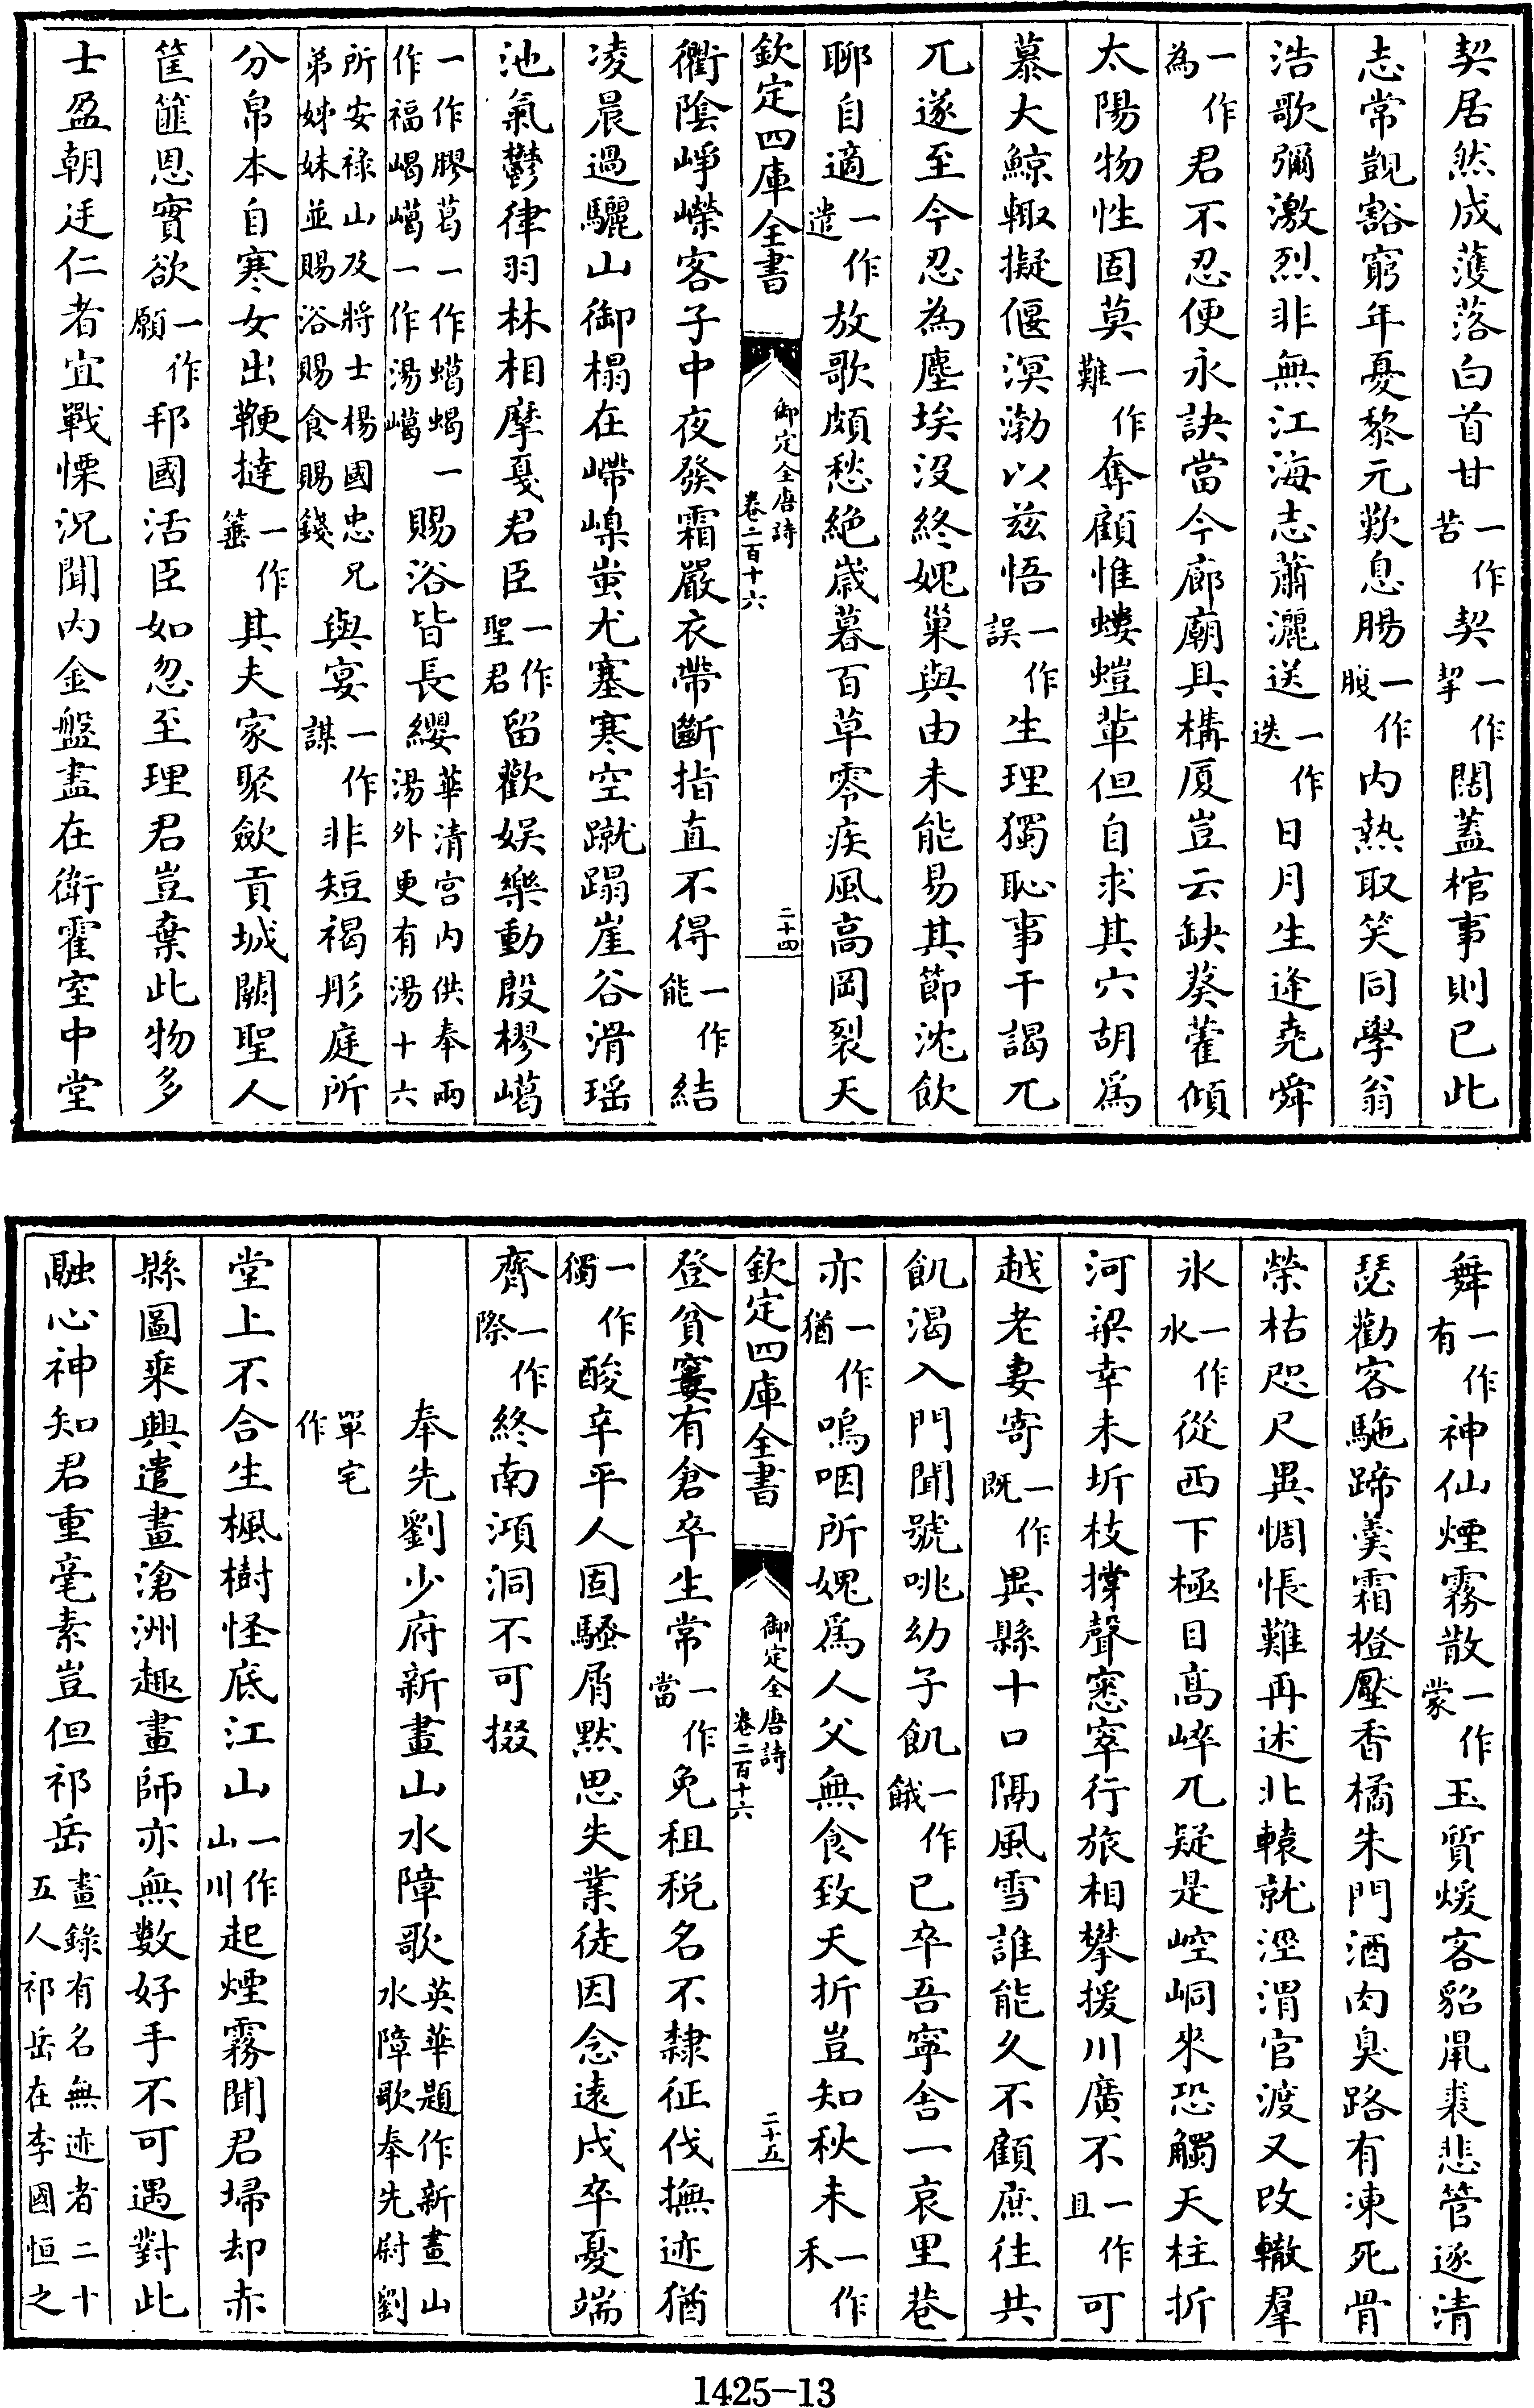 契居然成濩落白首甘一作苦契一作挈闊蓋棺事則已此
志常覬豁窮年憂黎元歎息腸一作腹内熱取笑同學翁
浩歌彌激烈非無江海志蕭灑送一作迭日月生逢堯舜
一作為君不忍便永訣當今廊廟具構厦豈云缺葵藿傾
太陽物性固莫一作難奪顧惟螻螘輩但自求其穴胡為
慕大鯨輙擬偃溟渤以兹悟一作誤生理獨恥事干謁兀
兀遂至今忍為塵埃没終媿巢與由未能易其節沈飲
聊自適一作遣放歌頗愁絶歳暮百草零疾風高岡裂天
欽定四庫全書
御定全唐詩
卷二百十六
二十四
衢陰崢嶸客子中夜發霜嚴衣帶斷指直不得一作能結
凌晨過驪山御榻在嵽嵲蚩尤塞寒空蹴蹋崖谷滑瑶
池氣鬱律羽林相摩戛君臣一作聖君留歡娱樂動殷樛嶱
一作膠葛一作蠍蝎一作福嵑嶱一作湯嶱賜浴皆長纓華清宫内供奉兩湯外更有湯十六
所安禄山及將士楊國忠兄弟姊妹並賜浴賜食賜錢與宴一作謀非短褐彤庭所
分帛本自寒女出鞭撻一作箠其夫家聚歛貢城闕聖人
筐篚恩實欲一作願邦國活臣如忽至理君豈棄此物多
士盈朝廷仁者宜戰慄況聞内金盤盡在衛霍室中堂
舞一作有神仙煙霧散一作蒙玉質煖客貂鼠裘悲管逐清
瑟勸客駞蹄羮霜橙壓香橘朱門酒肉臭路有凍死骨
榮枯咫尺異惆悵難再述北轅就涇渭官渡又改轍羣
氷一作水從西下極目髙崒兀疑是崆峒來恐觸天柱折
河梁幸未坼枝撐聲窸窣行旅相攀援川廣不一作且可
越老妻寄一作既異縣十口隔風雪誰能久不顧庶往共
飢渴入門聞號咷幼子飢一作餓已卒吾寧舍一哀里巷
亦一作猶嗚咽所媿為人父無食致夭折豈知秋未一作禾
欽定四庫全書
御定全唐詩
卷二百十六
二十五
登貧窶有倉卒生常一作當免租税名不隸征伐撫迹猶
一作獨酸辛平人固騷屑默思失業徒因念遠戍卒憂端
齊一作際終南澒洞不可掇
奉先劉少府新畫山水障歌英華題作新畫山水障歌奉先尉劉
單宅作
堂上不合生楓樹怪底江山一作山川起煙霧聞君埽却赤
縣圖乘興遣畫滄洲趣畫師亦無數好手不可遇對此
融心神知君重毫素豈但祁岳畫錄有名無迹者二十五人祁岳在李國恒之
1425-13